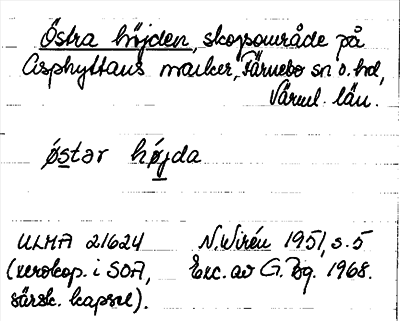 Östra höjden, skogsområde på
Asphyttans marker, Färnebo sn o. hd,
Värml. län.
östər höjda
ULMA 21624 N. Wirén 1951, s. 5
(xerokop. i SOA, Exc. av G. Bg. 1968.
särsk. kapsel).